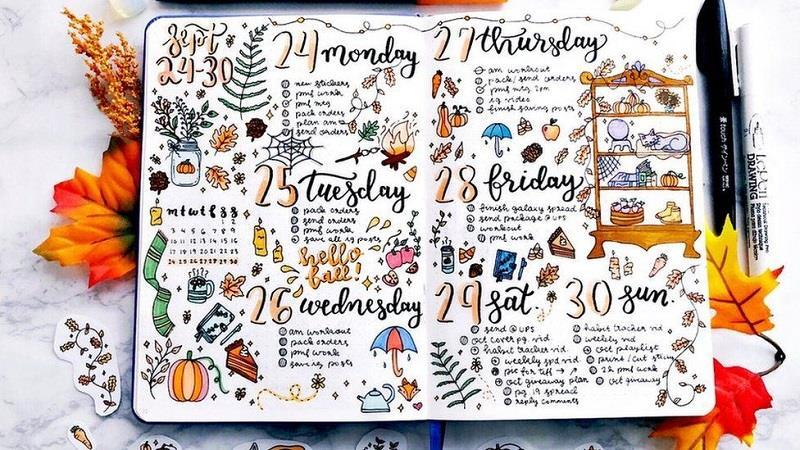 Sept
24-30
24 monday
new stickers
pmf work
pmf mtg
pack orders
plan am
send orders
25 tuesday
pack orders
send orders
pmf work
save all ig posts
hello
fall!
m t w t f s s
3 4 5 6 7 8 9
10 11 12 13 14 15 16
17 18 19 20 21 22 23
24 25 26 27 28 29 30
26 wednesday
am workout
pack orders
pmf work
save ig posts
27 thursday
am workout
pack/send orders
pmf mtg 2pm
ig video
finish saving posts
28 friday
finish galaxy spread
send package @ UPS
workout
pmf work
29 sat.
send @ UPS
oct cover pg. vid
habit tracker vid.
weekly sprd vid
pic for tiff →
oct giveaway plan
pg. 19 spread
reply comments
30 sun.
habit tracker vid
weekly vid
oct playlist
print / cut sticky
2h pmf work
oct giveaway
DRAWING